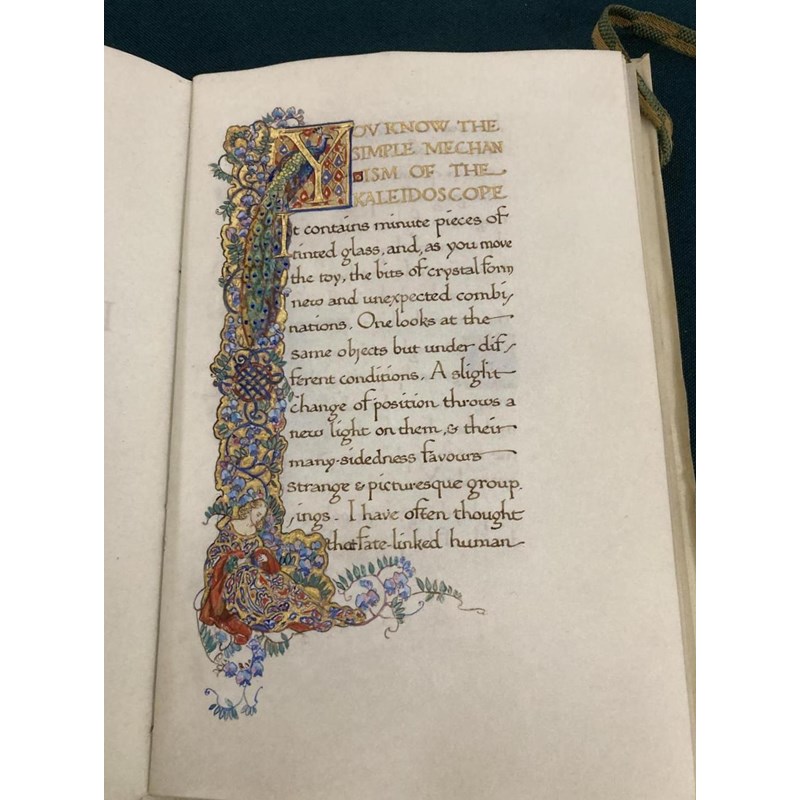 YOV KNOW THE
SIMPLE MECHAN
ISM OF THE
KALEIDOSCOPE
It contains minute pieces of
tinted glass, and, as you move
the toy, the bits of crystal form
new and unexpected combi/
nations. One looks at the
same objects but under dif/
ferent conditions. A slight
change of position throws a
new light on them, & their
many-sidedness favours
strange & picturesque group.
/ings. I have often thought
that fate-linked human